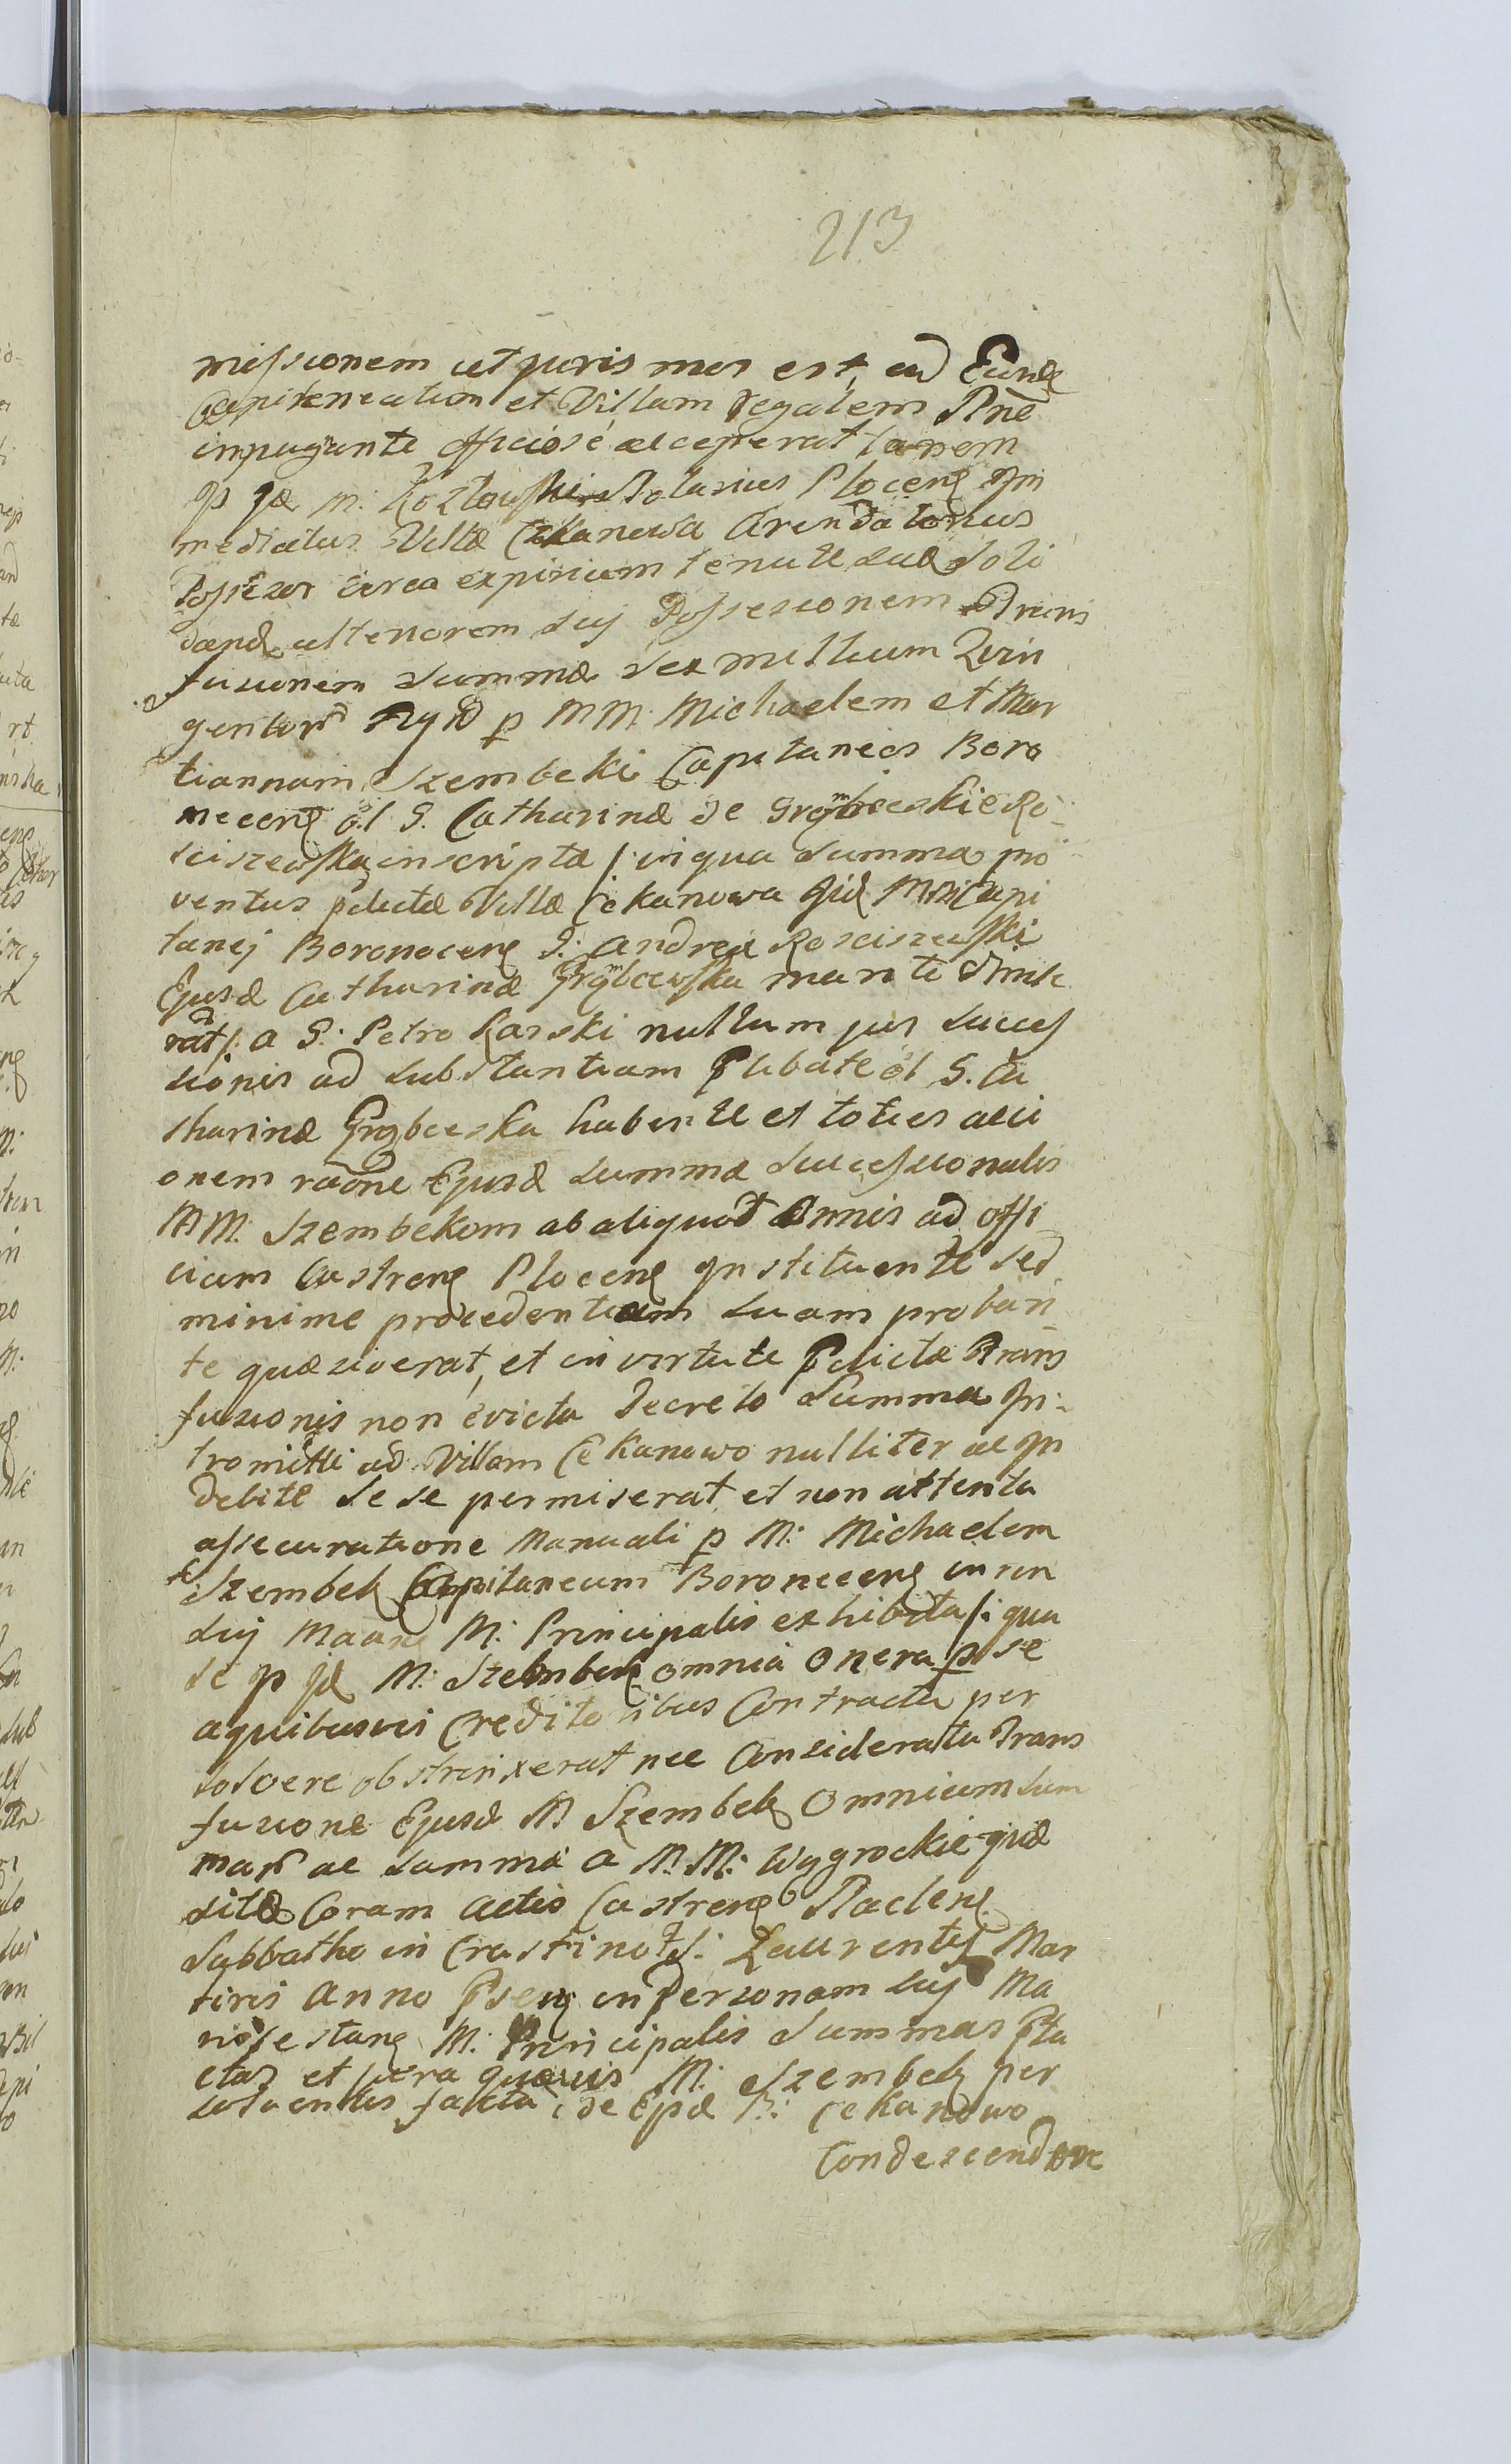 213
missionem ut juris mos est, ad Eund
Capitaneatum et Villam Regalem Nne
impugnante officiose acceperat tamen
p Jd M: Kozłowski Notarius Plocens Im
mediatus Villæ Cekanowa Arendatorius
Possessor circa expirium tenutæ suæ Soli
dand ulteriorem sui Possessionem Trans
fusionem Summæ sex millium Quin
gentor p MM. Michaelem et Mar
tiannam Szembeki Capitaneos Boro
necens ol G. Catharinæ de Grąbceskie Ro
sciszewska inscriptæ /: in qua Summa pro
ventus pdictæ Villæ Cekanowa Mfici Capi
tanej Boronocens G: Andreæ Rosciszewski
Ejusd Catharinæ Grąbcewska marito
rat :/ a G: Petro Karski nullum jus succes
sionis ad substantiam Plibatæ ol G. Ca
tharinæ Grąbceska habente et toties acti
onem raone Ejusd Summæ Successionalis
MM. Szembekom ab aliquot Annis ad offi
cium Castrens Plocens Instituente sed
minime procedentiam suam proban
te quæsiverat, et in virtute Pdictæ Trans
fusionis non evicta Decreto Summa In
tromitti ad Villam Cekanowo nulliter ac In
debite sese permiserat et non attenta
assecuratione Manuali p M: Michaelem
Szembek Capitaneum Boronecens in rem
sui Maans M: Principalis exhibita /: qua
se p Jd M: Szembek omnia onera p se
a quibusvis Creditoribus Contracta per
solvere obstrinxerat nec Considerata Trans
fusione Ejusd M Szembek Omnium Sum
mar ac Summa a M.M: Wygrockie quæ
sitæ Coram Actis Castrens Raciens
Sabbatho in Crastino S: Laurentij Mar
tiris Anno Psens in Personam sui Ma
nifestans M: Principalis Summas Pta
ctas et jura quævis M: Szembek per
solventis facta, de Epd B: Cekanowo
Condescendere